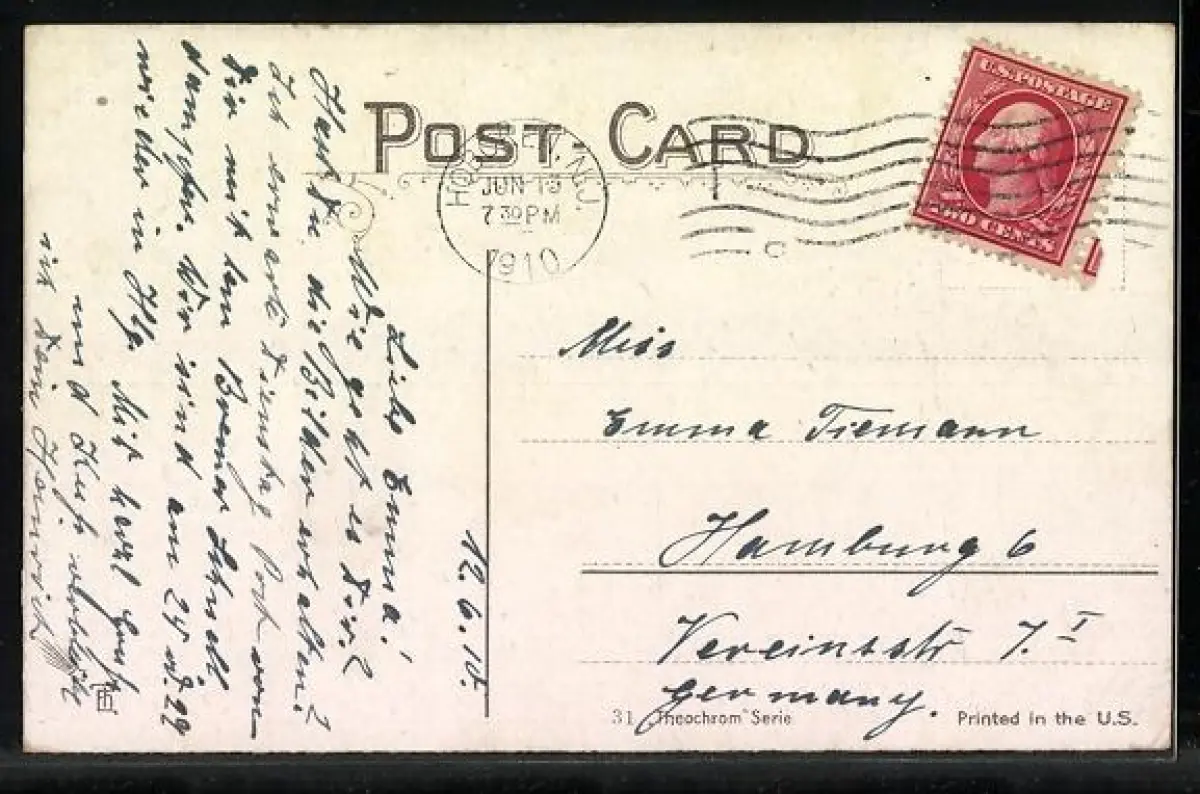 POST CARD
HOBOKEN, N.J.
JUN 13
7 30 PM
1910
C
U.S. POSTAGE
TWO CENTS
12. 6. 10.
Liebe Emma!
Wie geht es Dir?
Hast Du die Bilder erhalten?
Ich erwarte Dienstag Post von
Dir mit dem Bremer Schnell-
dampfer. Wir sind am
wieder in Hbg. Mit herzl Gruß
und Kuß
ich Dein Heinrich
Miss
Emma Tiemann
Hamburg 6
Vereinsstr 7. I
Germany.
31 "Theochrom" Serie
Printed in the U.S.